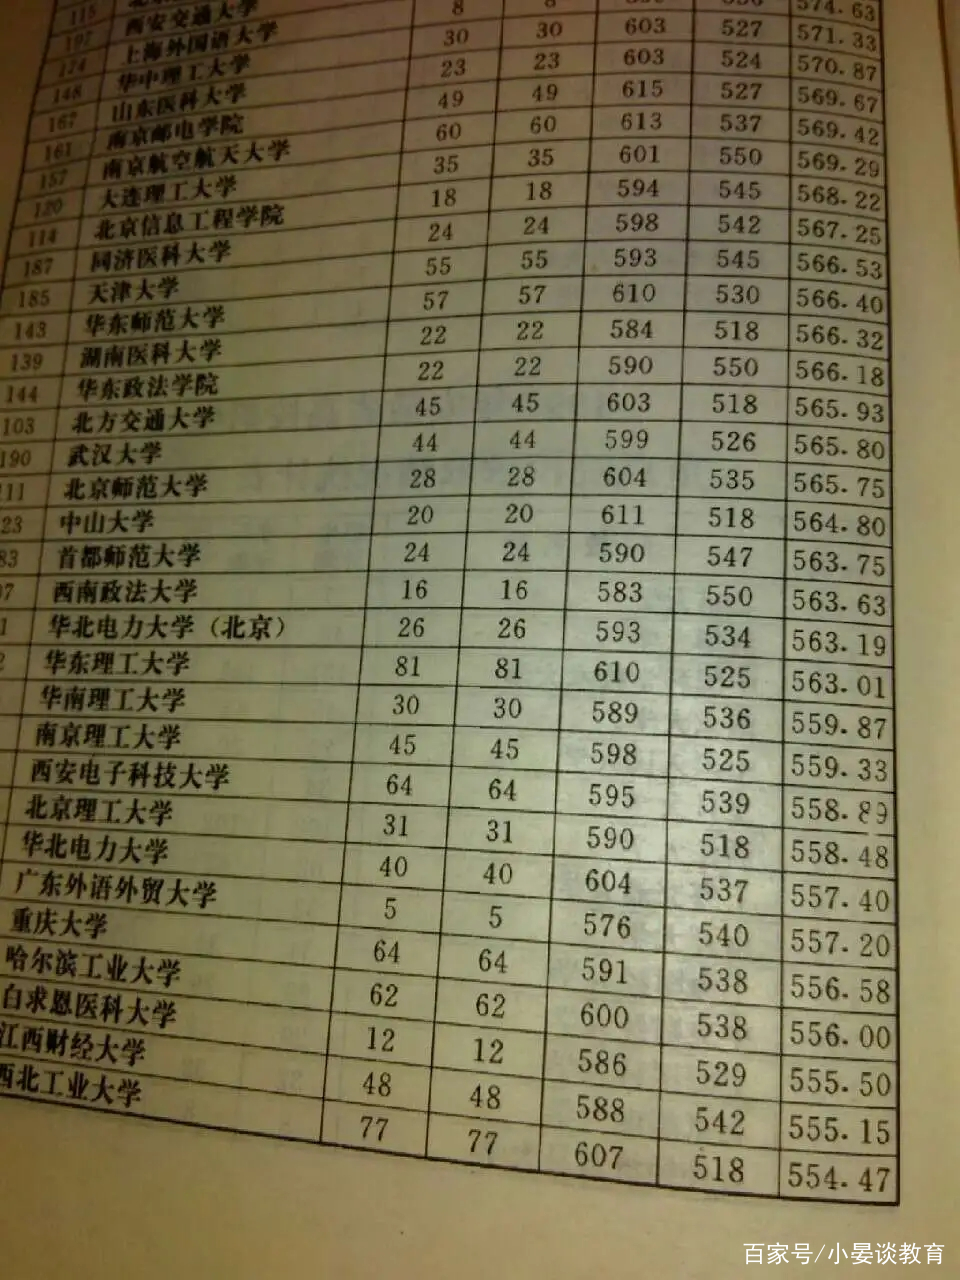 115 北京
197 西安交通大学
124 上海外国语大学 8 8 574.63
148 华中理工大学 30 30 603 527 571.33
167 山东医科大学 23 23 603 524 570.87
161 南京邮电学院 49 49 615 527 569.67
157 南京航空航天大学 60 60 613 537 569.42
120 大连理工大学 35 35 601 550 569.29
114 北京信息工程学院 18 18 594 545 568.22
187 同济医科大学 24 24 598 542 567.25
185 天津大学 55 55 593 545 566.53
143 华东师范大学 57 57 610 530 566.40
139 湖南医科大学 22 22 584 518 566.32
144 华东政法学院 22 22 590 550 566.18
103 北方交通大学 45 45 603 518 565.93
190 武汉大学 44 44 599 526 565.80
111 北京师范大学 28 28 604 535 565.75
23 中山大学 20 20 611 518 564.80
83 首都师范大学 24 24 590 547 563.75
07 西南政法大学 16 16 583 550 563.63
1 华北电力大学（北京） 26 26 593 534 563.19
2 华东理工大学 81 81 610 525 563.01
华南理工大学 30 30 589 536 559.87
南京理工大学 45 45 598 525 559.33
西安电子科技大学 64 64 595 539 558.89
北京理工大学 31 31 590 518 558.48
华北电力大学 40 40 604 537 557.40
广东外语外贸大学 5 5 576 540 557.20
重庆大学 64 64 591 538 556.58
哈尔滨工业大学 62 62 600 538 556.00
白求恩医科大学 12 12 586 529 555.50
江西财经大学 48 48 588 542 555.15
西北工业大学 77 77 607 518 554.47
百家号/小晏谈教育